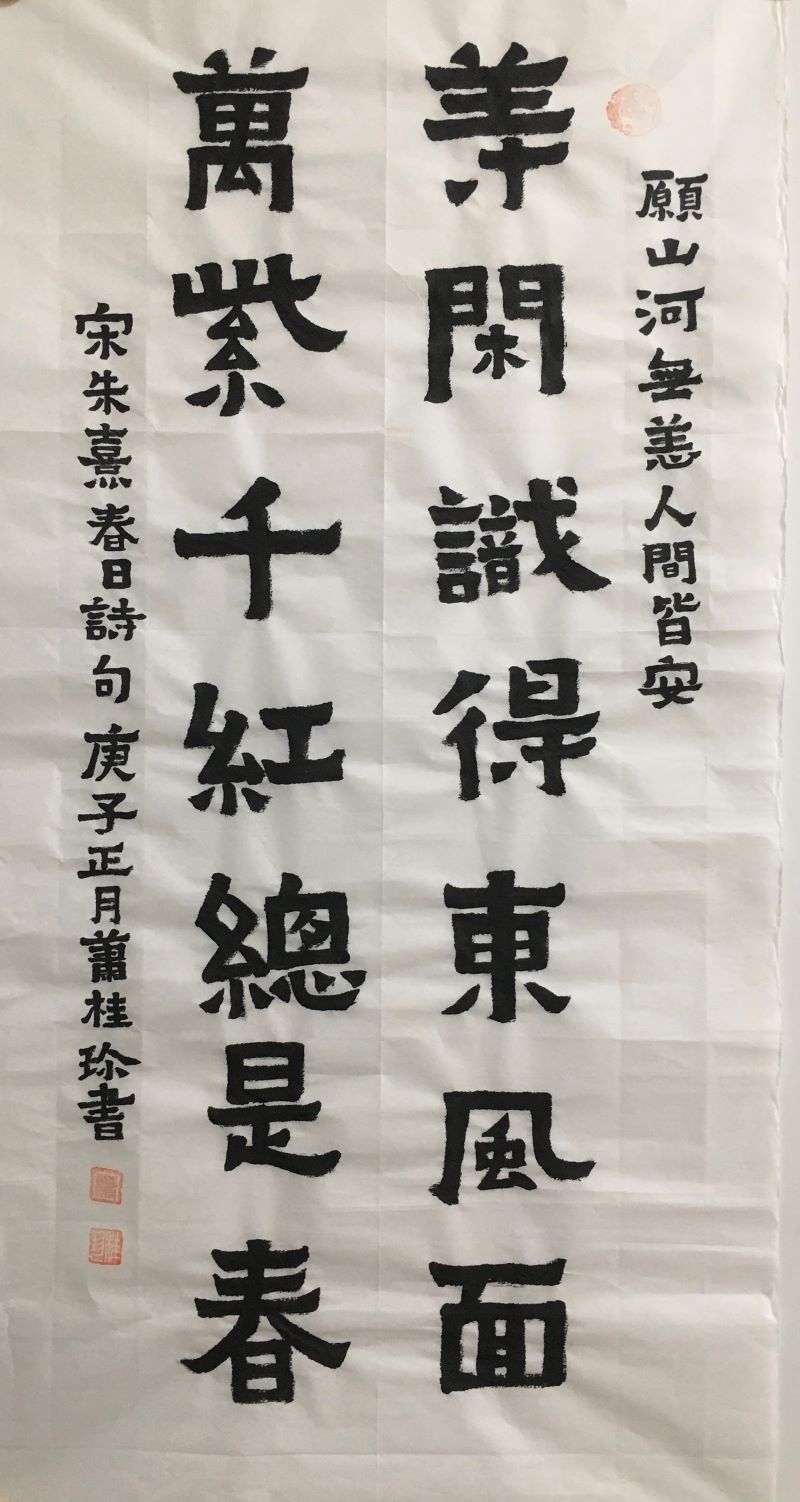 願山河無恙人間皆安
等閑識得東風面
萬紫千紅總是春
宋朱熹春日詩句庚子正月蕭桂珍書